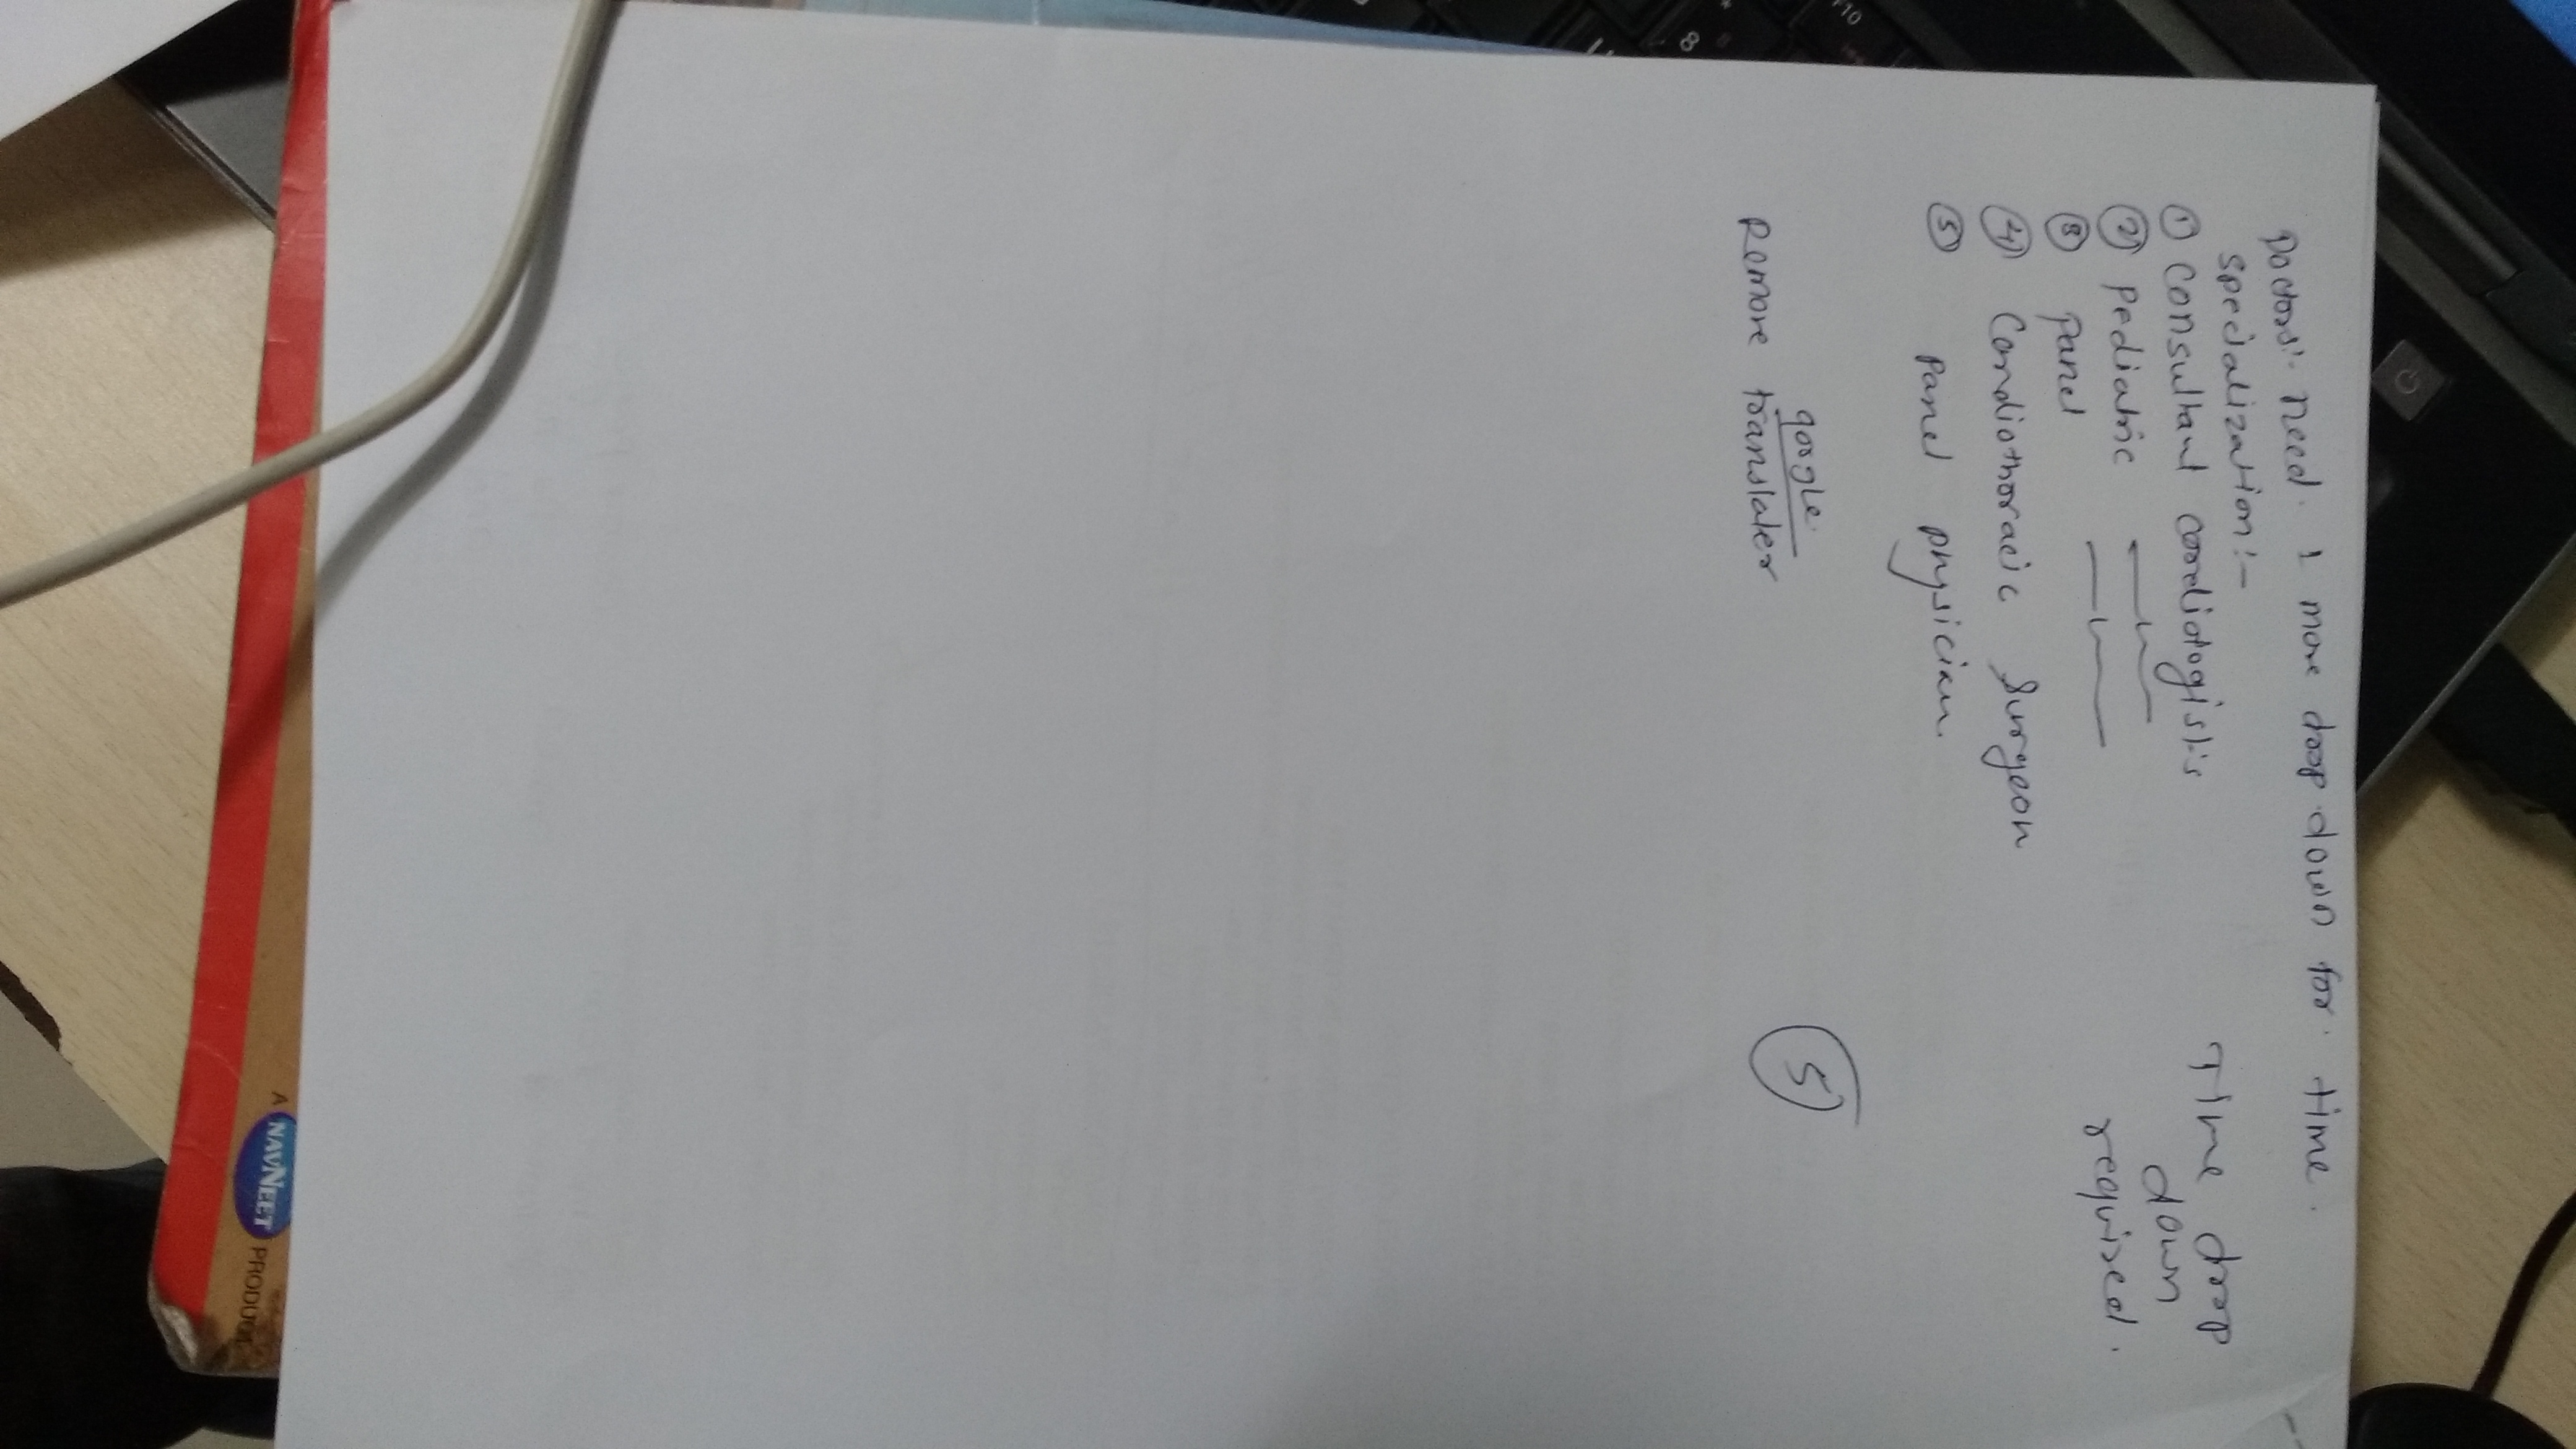 Doctors:- need. 1 more drop down for. time.
specialization:-
① Consultant cardiologist's
② Pediatric —〃—
③ Panel —〃—
④ Cardiothoracic Surgeon
⑤ Panel physician.
Time drop
down
required.
google
Remove translater
5
A NAVNEET PRODUC
8
F10